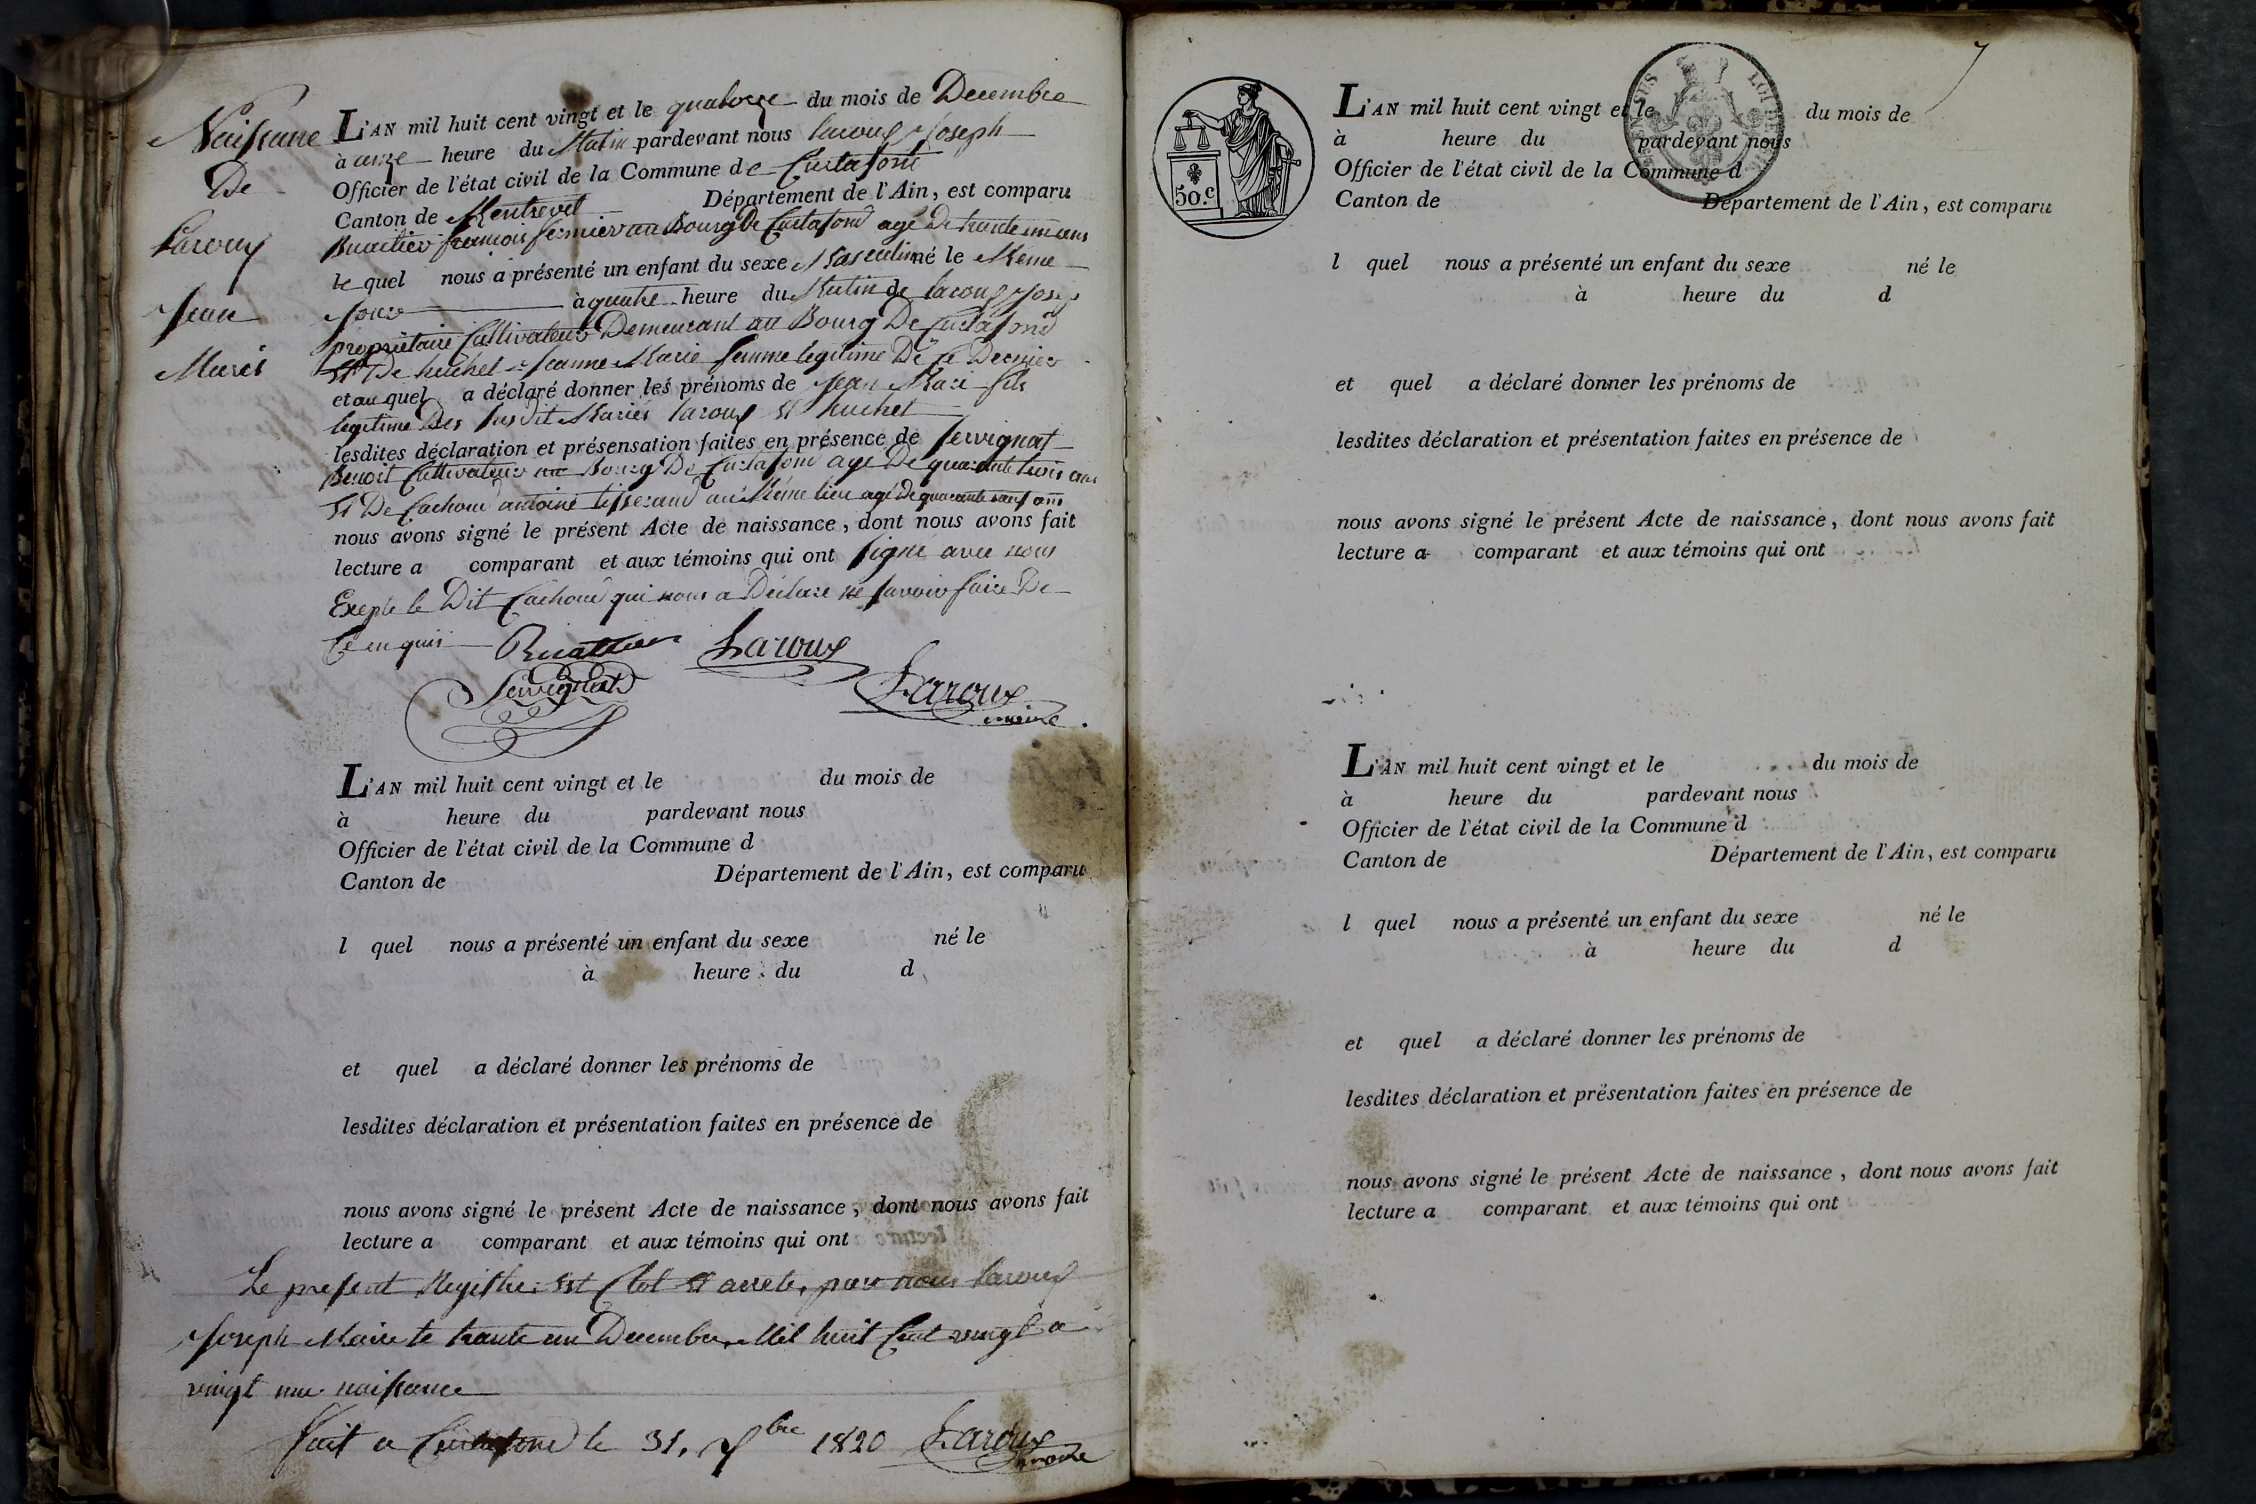 Naissance
De
Laroux
Jean
Marie
L'AN mil huit cent vingt et le quatorze du mois de Decembre
à onze heure du Matin pardevant nous Laroux Joseph
Officier de l'état civil de la Commune de Curtafond
Canton de Montrevel Département de l'Ain, est comparu
françois fermier au Bourg De Curtafond agé De trante un ans
le quel nous a présenté un enfant du sexe Masculin né le Même
Jour à quatre heure du Matin de Laroux Joseph
propriétaire Cultivateur Demeurant au Bourg De Curtafond
Et De huchet Jeanne Marie femme legitime De Ce Dernier
et au quel a déclaré donner les prénoms de Jean Marie fils
legitime Des susdit Mariés Laroux Et huchet
lesdites déclaration et présensation faites en présence de Servignat
Benoit Cultivateur au Bourg De Curtafond agé De quarante trois ans
Et De Cachoud antoine tisserand au Même lieu agé De quarante neuf ans
nous avons signé le présent Acte de naissance, dont nous avons fait
lecture a comparant et aux témoins qui ont signé avec nous
Exepte le Dit Cachoud qui nous a Déclaré ne savoir faire De
Ce enquis
Laroux
Servignat
Laroux
maire
L'AN mil huit cent vingt et le du mois de
à heure du pardevant nous
Officier de l'état civil de la Commune d
Canton de Département de l'Ain, est comparu
l quel nous a présenté un enfant du sexe né le
à heure du d
et quel a déclaré donner les prénoms de
lesdites déclaration et présentation faites en présence de
nous avons signé le présent Acte de naissance, dont nous avons fait
lecture a comparant et aux témoins qui ont
Le present Registre Est Clot Et arreté, par nous Laroux
Joseph Maire le trante un Decembre Mil huit Cent vingt a
vingt une naissance
Fait a Curtafond le 31, Xbre 1820 Laroux
maire
7
50.c
L'AN mil huit cent vingt et le du mois de
à heure du pardevant nous
Officier de l'état civil de la Commune d
Canton de Département de l'Ain, est comparu
l quel nous a présenté un enfant du sexe né le
à heure du d
et quel a déclaré donner les prénoms de
lesdites déclaration et présentation faites en présence de
nous avons signé le présent Acte de naissance, dont nous avons fait
lecture a comparant et aux témoins qui ont
L'AN mil huit cent vingt et le du mois de
à heure du pardevant nous
Officier de l'état civil de la Commune d
Canton de Département de l'Ain, est comparu
l quel nous a présenté un enfant du sexe né le
à heure du d
et quel a déclaré donner les prénoms de
lesdites déclaration et présentation faites en présence de
nous avons signé le présent Acte de naissance, dont nous avons fait
lecture a comparant et aux témoins qui ont